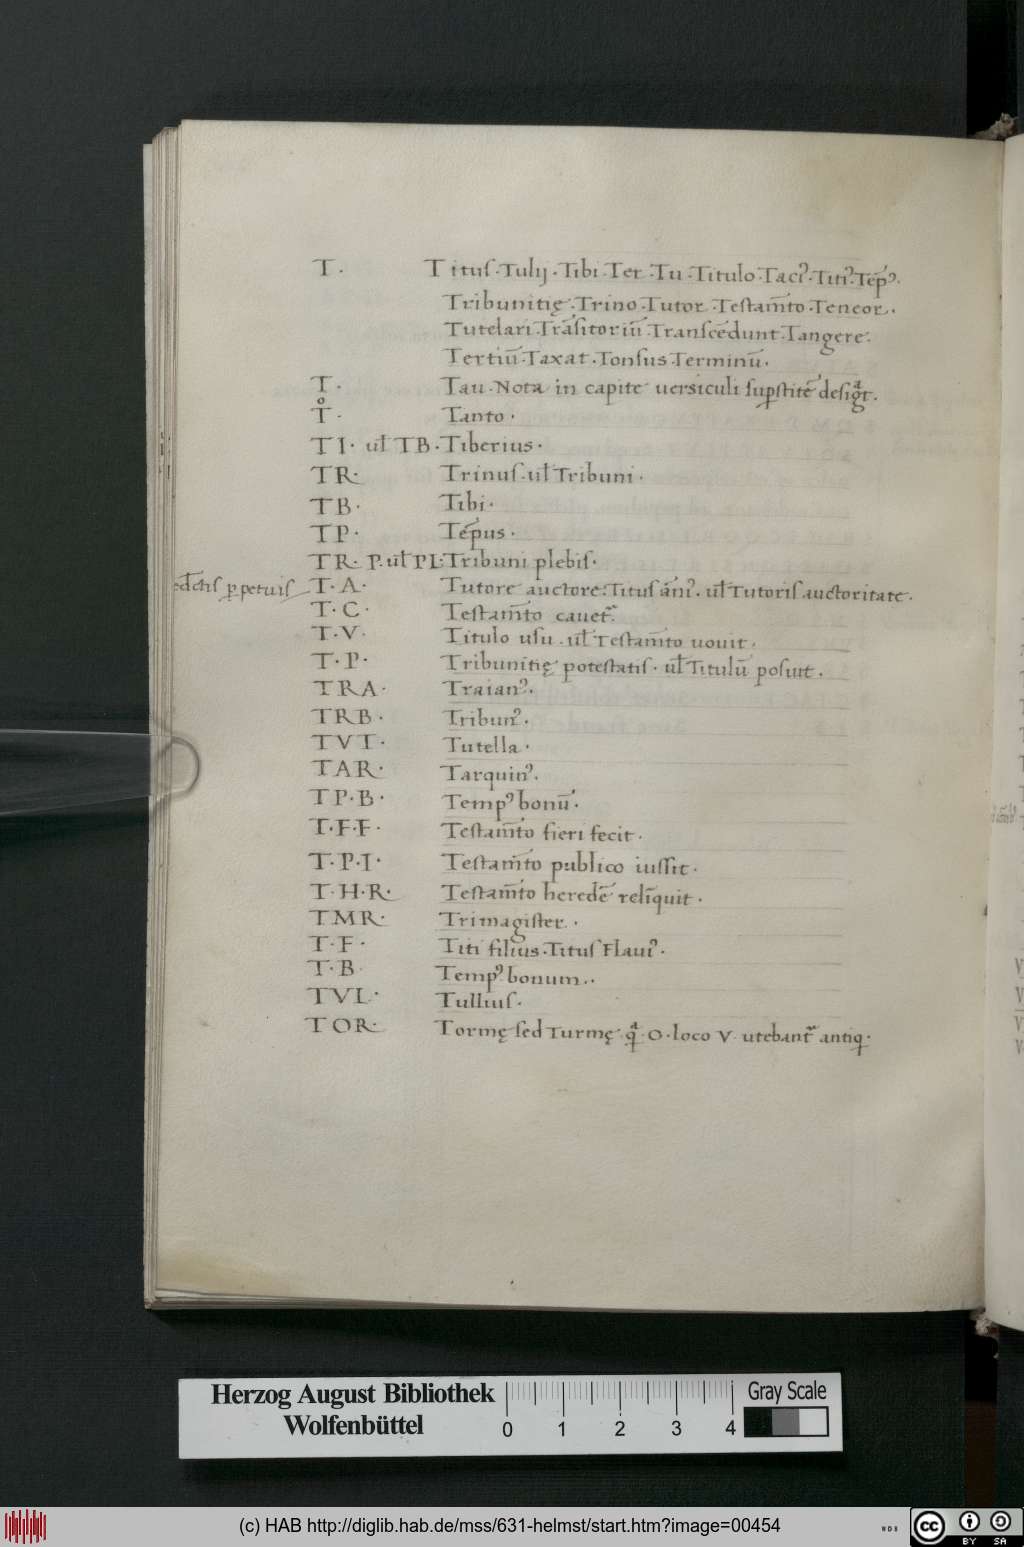 T · Titus · Tulij · Tibi · Ter · Tu · Titulo · Taciꝰ · Titiꝰ · Tēpꝰ ·
Tribunitię · Trino · Tutor · Testam̄to · Teneor ·
Tutelari · Trāsitoriū · Transcēdunt · Tangere ·
Tertiū · Taxat · Tonsus · Terminū ·
T · Tau · Nota in capite uersiculi suꝑstitē
T̊ · Tanto ·
TI · ul̄ TB · Tiberius ·
TR · Trinus · ul̄ Tribuni ·
TB · Tibi ·
TP · Tēpus ·
TR · P · ul̄ PL · Tribuni plebis ·
ꝑpetuis T · A · Tutore auctore · Titus ānı̄ · ul̄ Tutoris auctoritate ·
T · C · Testam̄to cauet᷑
T · V · Titulo usu · ul̄ Testam̄to uouit ·
T · P · Tribunitię potestatis · ul̄ Titulū posuit ·
TRA · Traianꝰ ·
TRB · Tribunꝰ ·
TVT · Tutella ·
TAR · Tarquinꝰ ·
TP · B · Tempꝰ bonū ·
T · F · F · Testam̄to fieri fecit ·
T · P · I · Testam̄to publico iussit ·
T · H · R · Testam̄to heredē reliq̄uit ·
TMR · Trimagister ·
T · F · Titi filius · Titus Flauiꝰ ·
T · B Tempꝰ bonum ··
TVL · Tullius ·
TOR · Tormę sed Turmę · qᷓ · O · loco V · utebant᷑ antiq̣ ·
Herzog August Bibliothek
Wolfenbüttel
0 1 2 3 4
Gray Scale
(c) HAB http://diglib.hab.de/mss/631-helmst/start.htm?image=00454
WDB
cc
BY SA